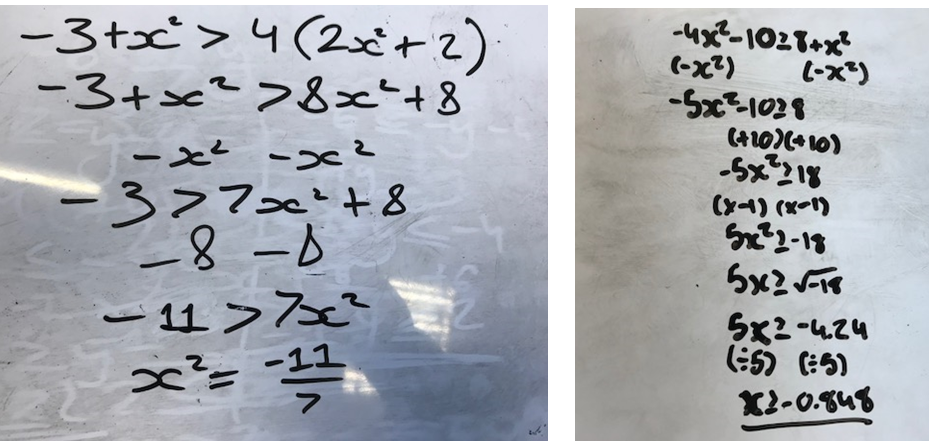 -3+x²>4(2x²+2)
-3+x²>8x²+8
-x² -x²
-3>7x²+8
-8 -8
-11>7x²
x²=-11/7
-4x²-10≥8+x²
(-x²) (-x²)
-5x²-10≥8
(+10)(+10)
-5x²≥18
(x-1) (x-1)
5x²≥-18
5x≥√-18
5x≥-4.24
(÷5) (÷5)
x≥-0.848